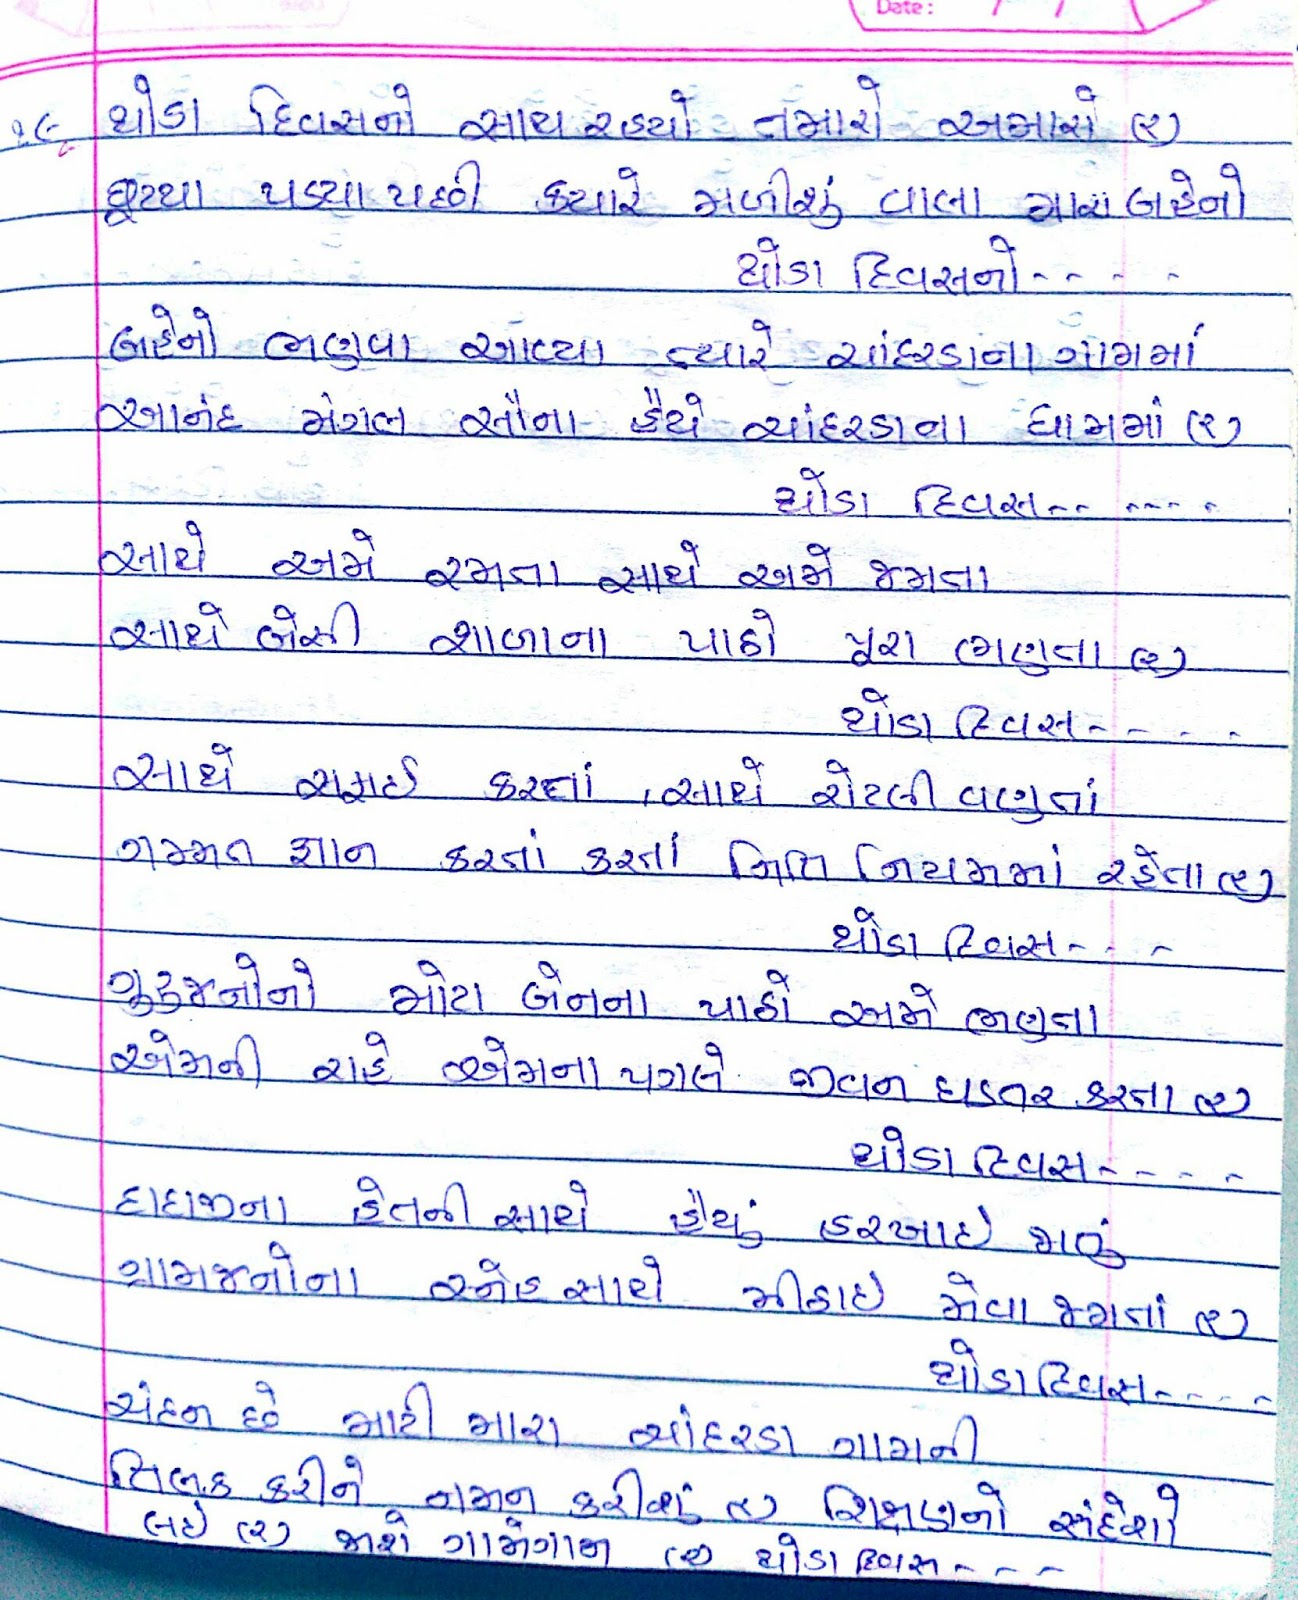 Date:
૨૯ થોડા દિવસનો સાથ રહયો તમારો અમારો (૨)
છૂટયા પડયા પછી કયારે મળીશું વાલા મારા બહેનો
થોડા દિવસનો - - - -
બહેનો ભણવા આવ્યા ત્યારે ચાંદરડાના ગામમાં
આનંદ મંગલ સૌના હૈયે ચાંદરડાના ધામમાં (૨)
થોડા દિવસ - - - - - -
સાથે અમે રમતા સાથે અમે જમતા
સાથે બેસી શાળાના પાઠો પૂરા ભણતા (૨)
થોડા દિવસ - - - -
સાથે સફાઈ કરતાં , સાથે રોટલી વણતાં
ગમ્મત જ્ઞાન કરતાં કરતાં નિતિ નિયમમાં રહેતા (૨)
થોડા દિવસ - - -
ગુરુજનોનો મોટા બેનના પાઠો અમે ભણતા
એમની રાહે એમના પગલે જીવન ઘડતર કરતા (૨)
થોડા દિવસ - - - -
દાદાજીના હેતની સાથે હૈયું હરખાઇ જતું
ગામજનોના સ્નેહ સાથે મીઠાઇ મેવા જમતાં (૨)
થોડા દિવસ - - - -
ચંદન છે માટી મારા ચાંદરડા ગામની
તિલક કરીને નમન કરીશું (૨) શિક્ષણનો સંદેશો
લઇ (૨) જાશે ગામેગામ (૨) થોડા દિવસ - - -